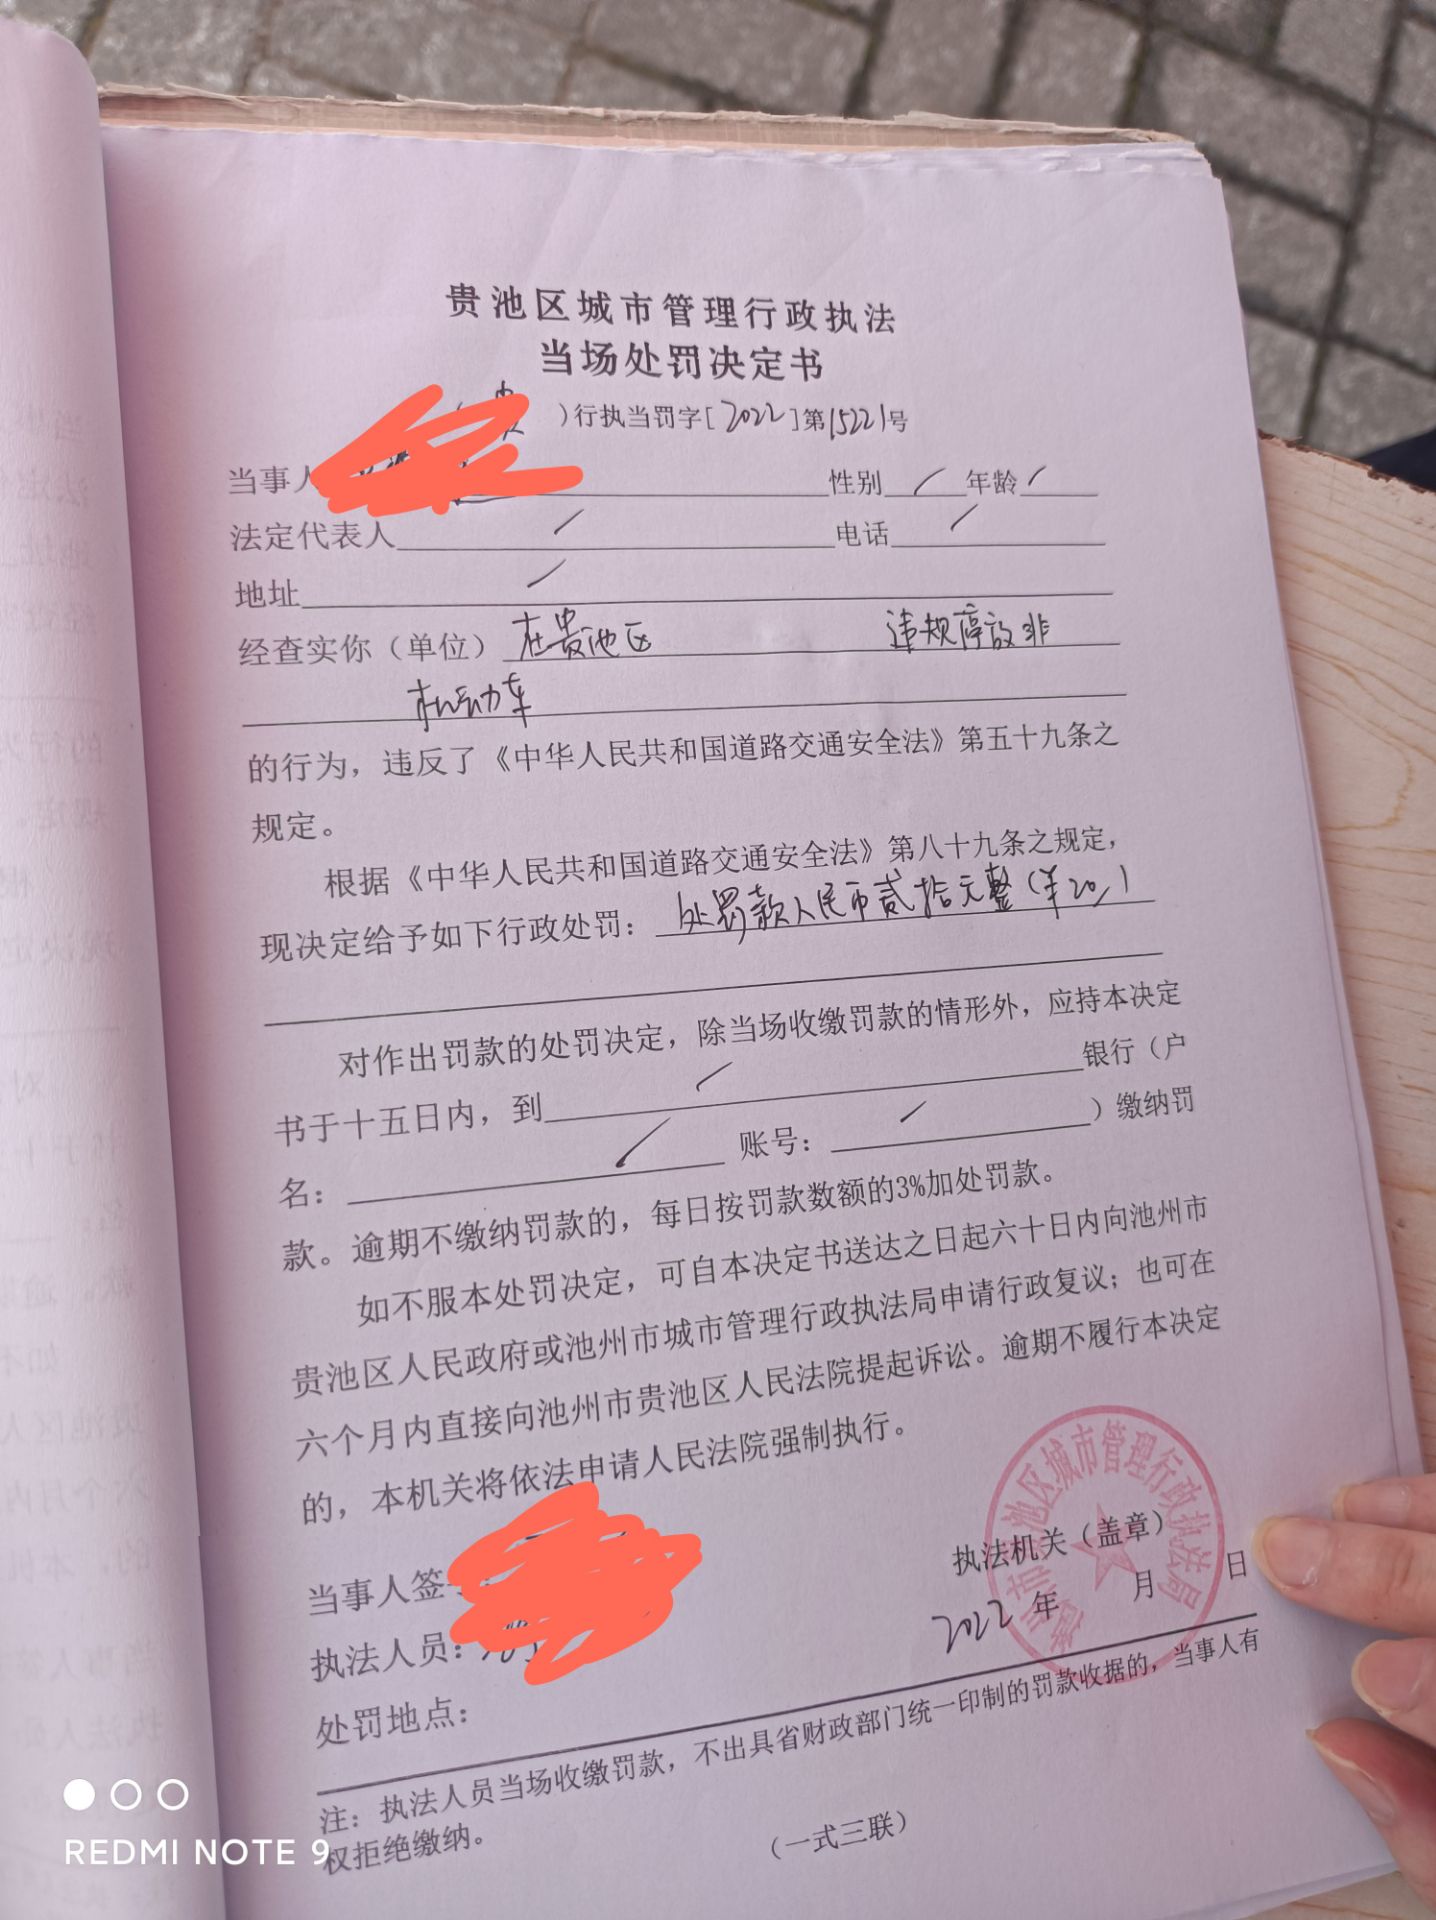 贵池区城市管理行政执法
当场处罚决定书
)行执当罚字[2022]第15221号
当事人 性别 / 年龄 /
法定代表人 / 电话 /
地址 /
经查实你（单位）在贵池区 违规停放非
机动车
的行为，违反了《中华人民共和国道路交通安全法》第五十九条之
规定。
根据《中华人民共和国道路交通安全法》第八十九条之规定，
现决定给予如下行政处罚：处罚款人民币贰拾元整（¥20）
对作出罚款的处罚决定，除当场收缴罚款的情形外，应持本决定
书于十五日内，到 / 银行（户
名： / 账号： / ）缴纳罚
款。逾期不缴纳罚款的，每日按罚款数额的3%加处罚款。
如不服本处罚决定，可自本决定书送达之日起六十日内向池州市
贵池区人民政府或池州市城市管理行政执法局申请行政复议；也可在
六个月内直接向池州市贵池区人民法院提起诉讼。逾期不履行本决定
的，本机关将依法申请人民法院强制执行。
当事人签
执法机关（盖章）
执法人员：
2022年 月 日
处罚地点：
池区城市管理行政执法局
注：执法人员当场收缴罚款，不出具省财政部门统一印制的罚款收据的，当事人有
权拒绝缴纳。
（一式三联）
REDMI NOTE 9